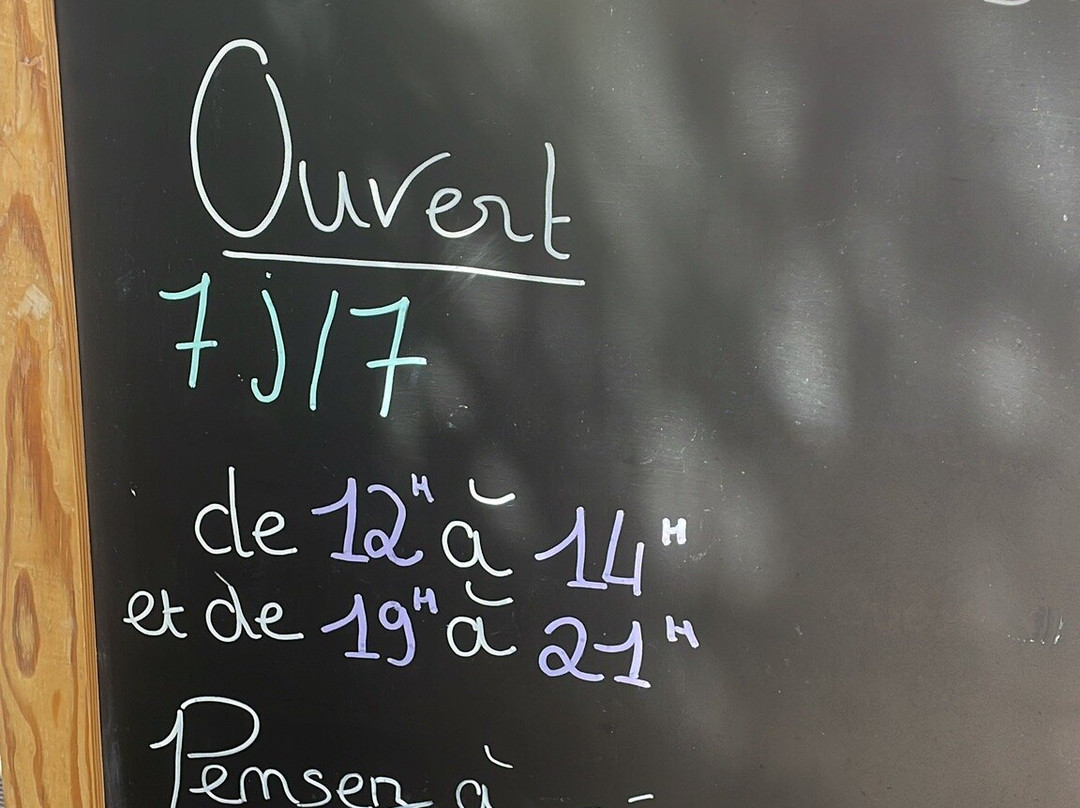 Ouvert
7j/7
de 12H à 14H
et de 19H à 21H
Penser à